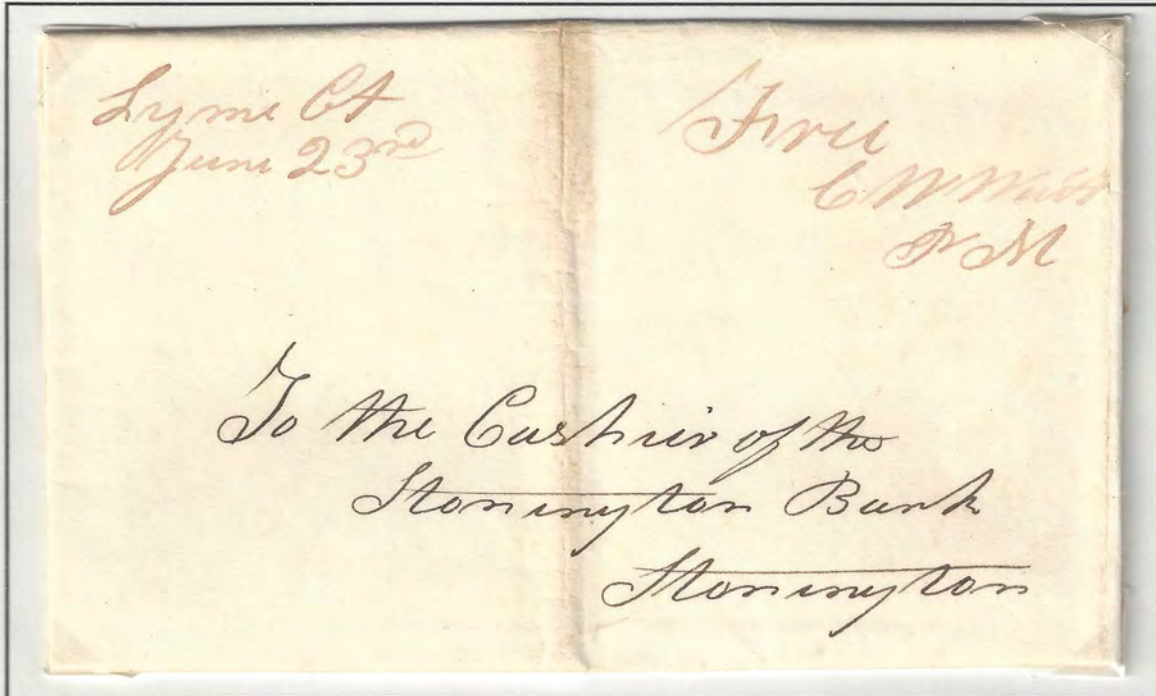 Lyme Ct
June 23rd
Free
C W
P M
To the Cashier of the
Stonington Bank
Stonington